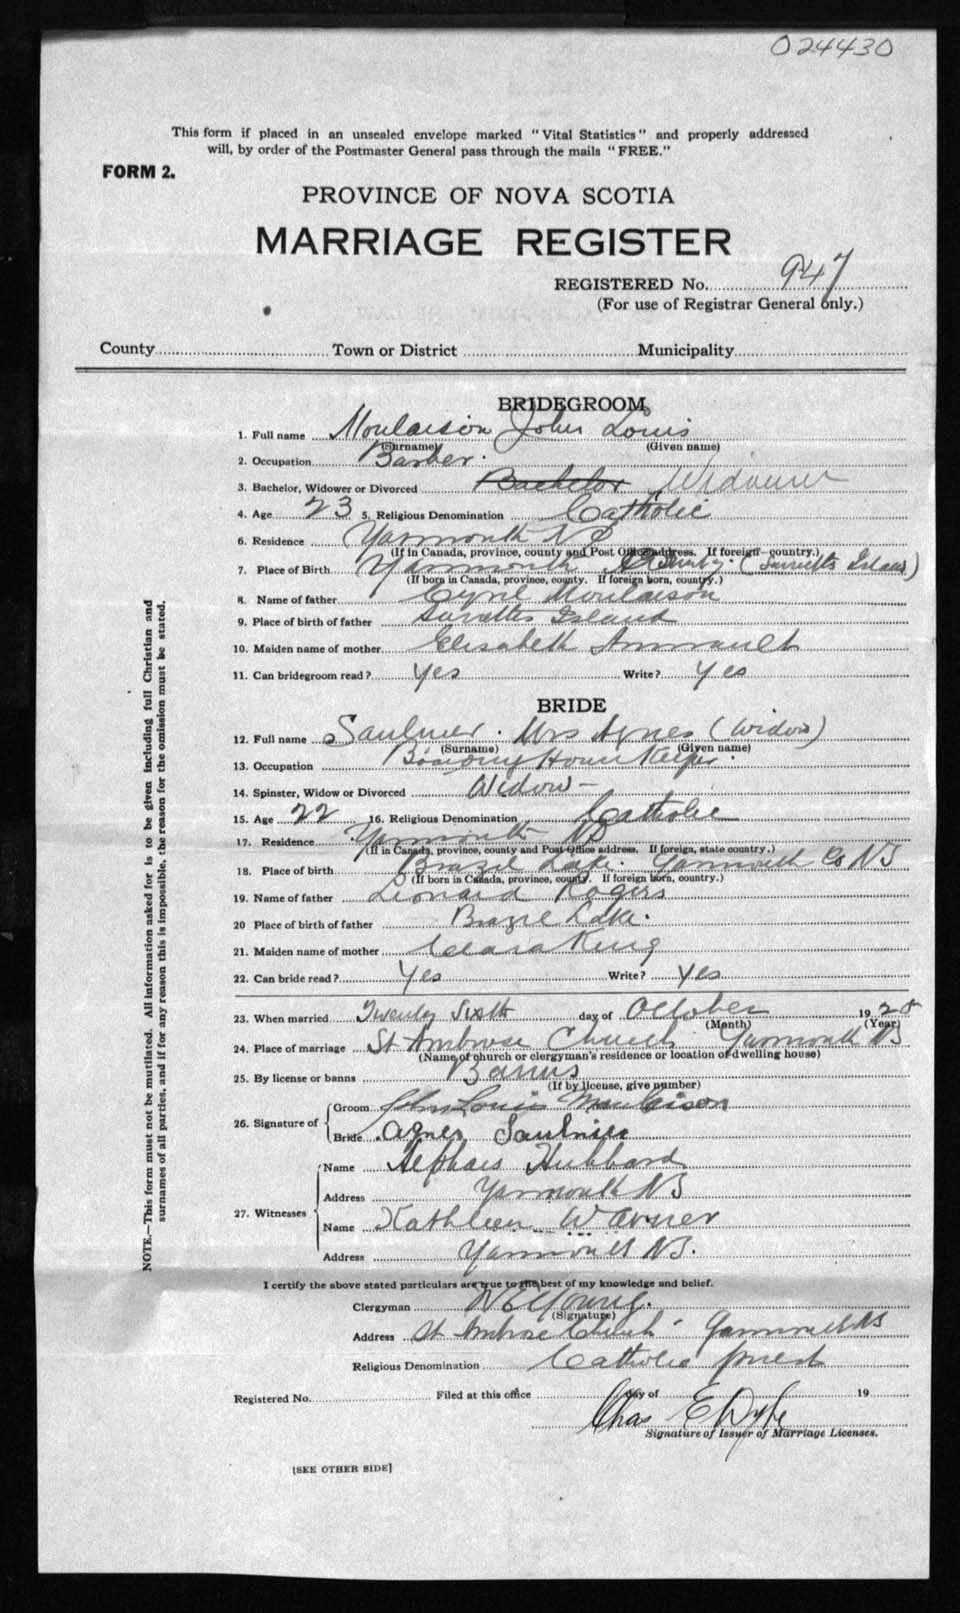 024430
This form if placed in an unsealed envelope marked "Vital Statistics" and properly addressed
will, by order of the Postmaster General pass through the mails "FREE."
FORM 2.
PROVINCE OF NOVA SCOTIA
MARRIAGE REGISTER
REGISTERED No. 947
(For use of Registrar General only.)
County Town or District Municipality
BRIDEGROOM
1. Full name Moulaison John Louis
(Surname) (Given name)
2. Occupation Barber.
3. Bachelor, Widower or Divorced Bachelor Widower
4. Age 23 5. Religious Denomination Catholic
6. Residence Yarmouth NS
(If in Canada, province, county and Post Office address. If foreign—country.)
7. Place of Birth Yarmouth County. (Surrette Island)
(If born in Canada, province, county. If foreign born, country.)
8. Name of father Cyril Moulaison
9. Place of birth of father Surettes Island
10. Maiden name of mother Elisabeth Amirault
11. Can bridegroom read? Yes Write? Yes
BRIDE
12. Full name Saulnier. Mrs Agnes (Widow)
(Surname) (Given name)
13. Occupation House Keeper.
14. Spinster, Widow or Divorced Widow -
15. Age 22 16. Religious Denomination Catholic
17. Residence Yarmouth NS
(If in Canada, province, county and Post Office address. If foreign, state country.)
18. Place of birth Brazil Lake. Yarmouth Co NS
(If born in Canada, province, county. If foreign born, country.)
19. Name of father Leonard Rogers
20 Place of birth of father Brazil Lake.
21. Maiden name of mother Clara King
22. Can bride read? Yes Write? Yes
23. When married Twenty Sixth day of October 1928
(Month) (Year)
24. Place of marriage St Ambrose Church Yarmouth NS
(Name of church or clergyman's residence or location of dwelling house)
25. By license or banns Banns
(If by license, give number)
26. Signature of Groom John Louis Moulaison
Bride Agnes Saulnier
27. Witnesses Name Alphais Hubbard
Address Yarmouth NS
Name Kathleen Warner
Address Yarmouth NS.
I certify the above stated particulars are true to the best of my knowledge and belief.
Clergyman W E Young.
(Signature)
Address St Ambrose Church - Yarmouth NS
Religious Denomination Catholic priest
Registered No. Filed at this office day of 19
Chas E
Signature of Issuer of Marriage Licenses.
[SEE OTHER SIDE]
NOTE.—This form must not be mutilated. All information asked for is to be given including full Christian and
surnames of all parties, and if for any reason this is impossible, the reason for the omission must be stated.